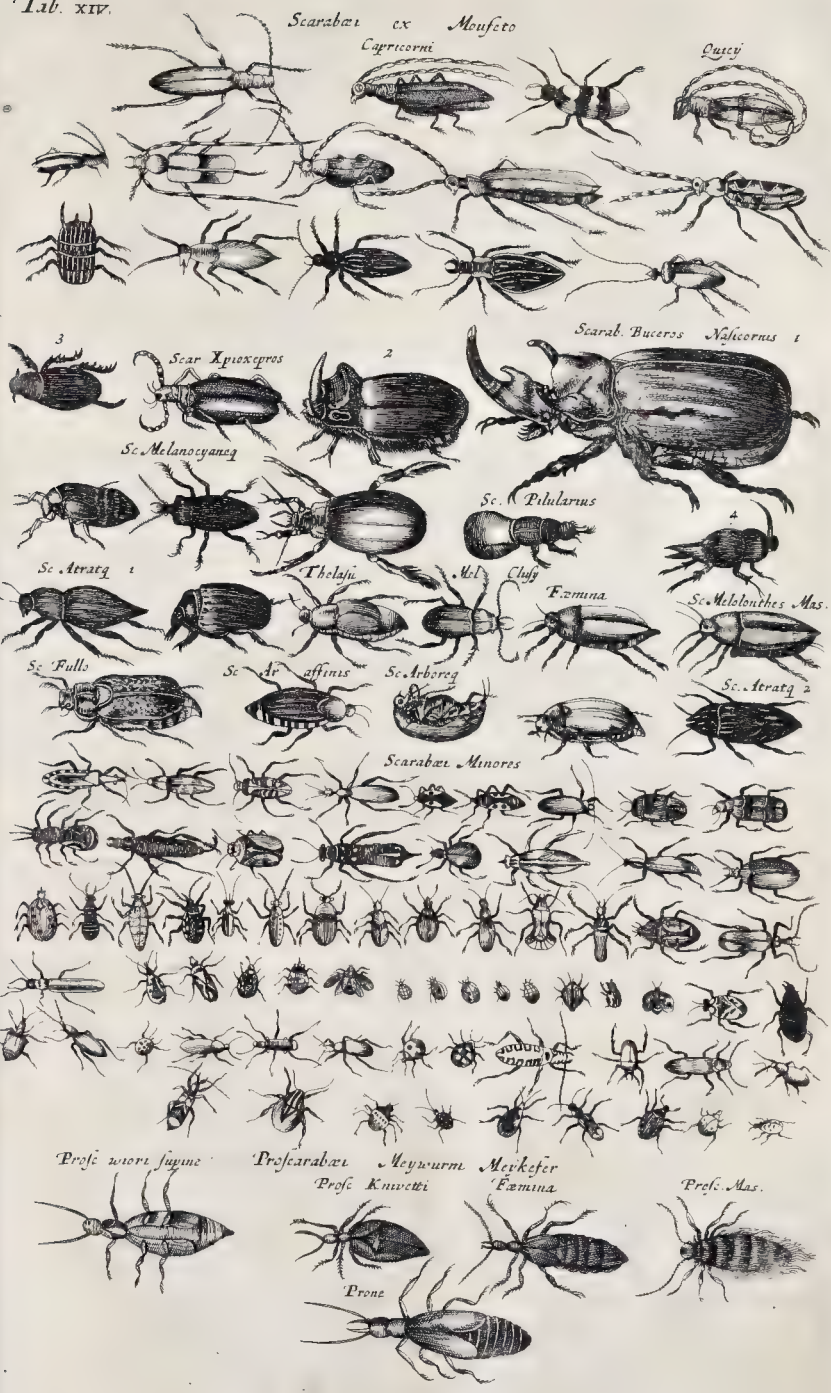 Tab. XIV.
Scarabæi ex Moufeto
Capricorni
Quicÿ
Scarab. Buceros Nasicornis 1
3
Scar Xpioxepros
2
Sc. Melanocyaneq
Sc. Pilularius
4
Sc Atratq 1
Thelasii
Mel Clusÿ
Fæmina
Sc Melolonthes Mas.
Sc Fullo
Sc Ar affinis
Sc Arboreq
Sc. Atratq 2
Scarabæi Minores
Prosc supine
Proscarabæi Meywurm Meÿkefer
Prosc Knivetti
Fæmina
Prosc. Mas.
Prone